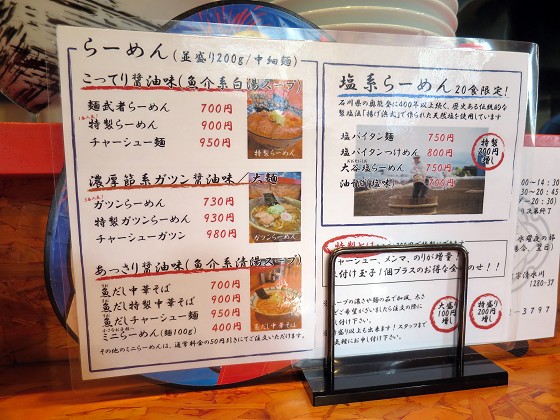 らーめん (並盛り200g/中細麺)
こってり醤油味(魚介系白湯スープ)
麺武者らーめん 700円
特製らーめん 900円
チャーシュー麺 950円
特製らーめん
濃厚節系ガツン醤油味/太麺
ガツンらーめん 730円
特製ガツンらーめん 930円
チャーシューガツン 980円
ガツンらーめん
あっさり醤油味(魚介系清湯スープ)
魚だし中華そば 700円
魚だし特製中華そば 900円
魚だしチャーシュー麺 950円
ミニらーめん(麺100g) 400円
魚だし中華そば
その他のミニらーめんは、通常料金の50円引きにてご注文いただけます。
塩系らーめん 20食限定!
石川県の奥能登に400年以上続く、歴史ある伝統的な
製塩法「揚げ浜式」で作られた天然塩を使用しています
塩パイタン麺 750円
塩パイタンつけめん 800円
大谷塩らーめん 750円
油そば(塩味) 700円
特製
200円
増し
特製とは
チャーシュー、メンマ、のりが増量
味付け玉子1個プラスのお得な
せ!!
大盛り
100円
増し
特盛り
200円
増し
スープの濃さや麺の
ご希望がございましたら注文の際に
し付け下さい。
盛り以上も出来ます!スタッフまで
気軽にお申し付け下さい。
00～14:30
30～20:45
～20:30)
1280-37
3797